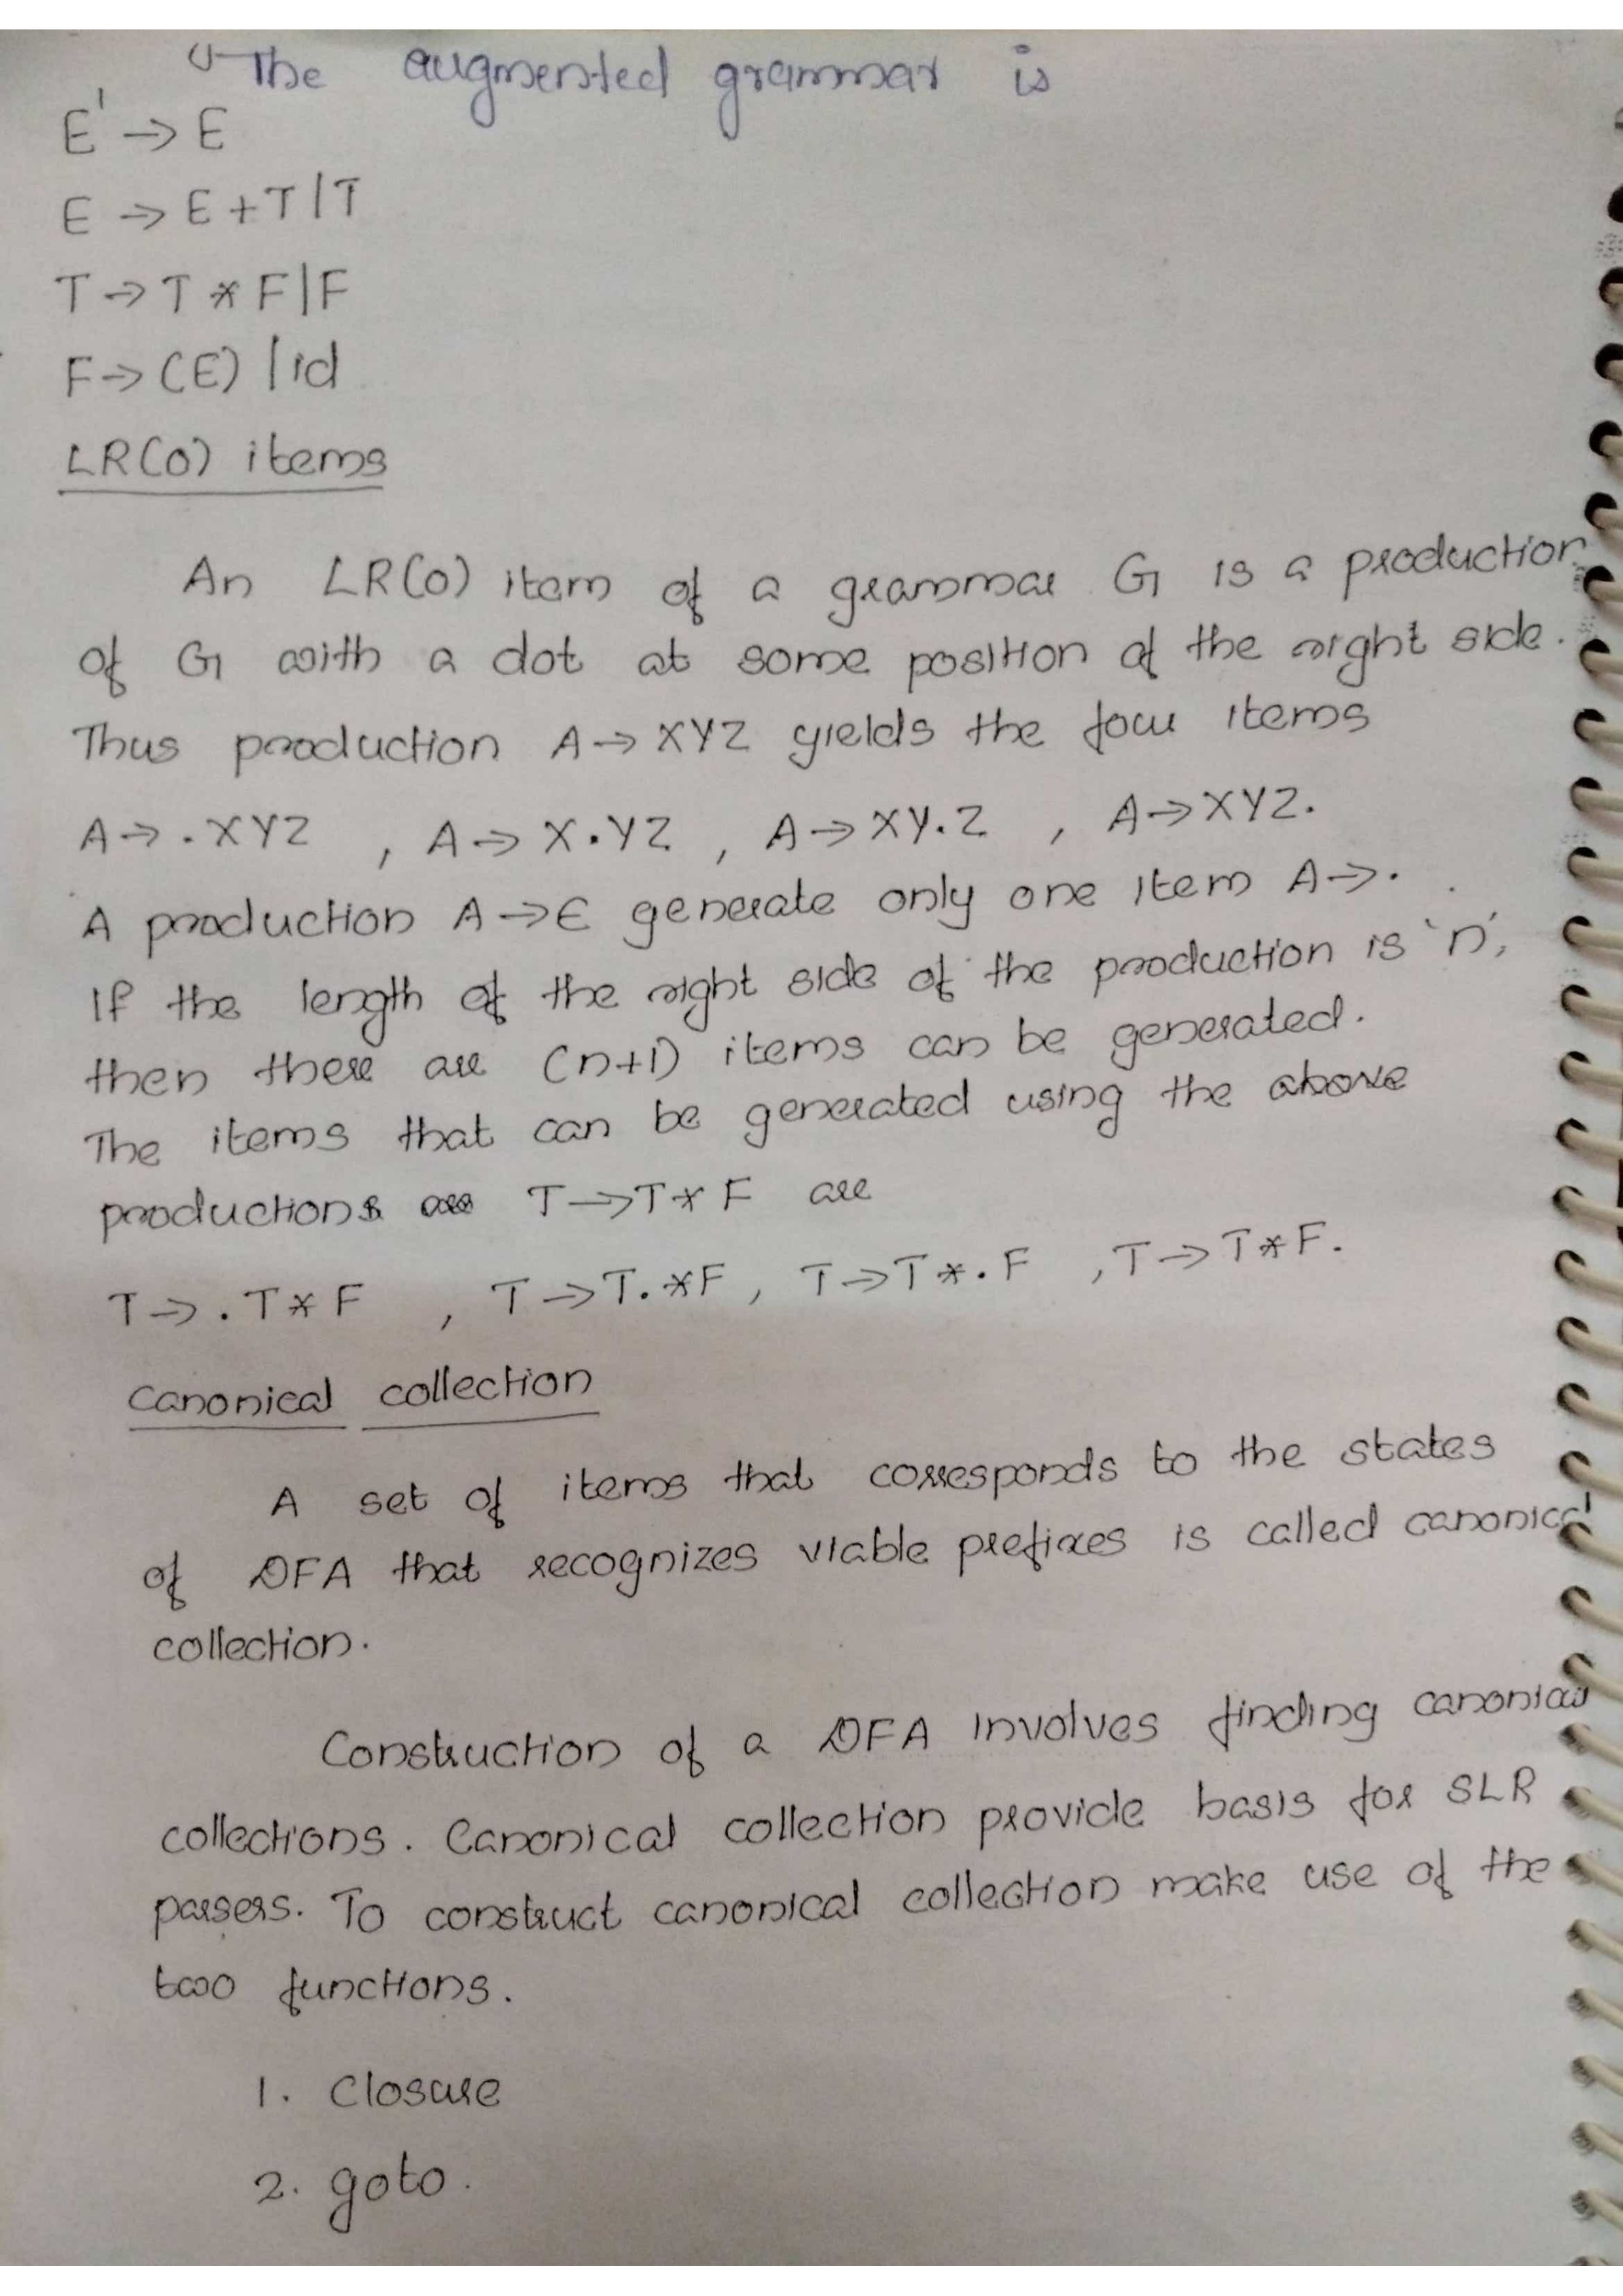 The augmented grammar is
E' → E
E → E+T|T
T → T * F|F
F → (E) | id
LR(0) items
An LR(0) item of a grammar G is a production
of G with a dot at some position of the right side.
Thus production A → XYZ yields the four items
A → .XYZ , A → X.YZ , A → XY.Z , A → XYZ.
A production A → ϵ generate only one item A → .
If the length of the right side of the production is 'n',
then there are (n+1) items can be generated.
The items that can be generated using the above
productions T → T * F are
T → .T * F , T → T. * F , T → T * .F , T → T * F.
Canonical collection
A set of items that corresponds to the states
of DFA that recognizes viable prefixes is called canonical
collection.
Construction of a DFA involves finding canonical
collections. Canonical collection provide basis for SLR
parsers. To construct canonical collection make use of the
two functions.
1. Closure
2. goto.